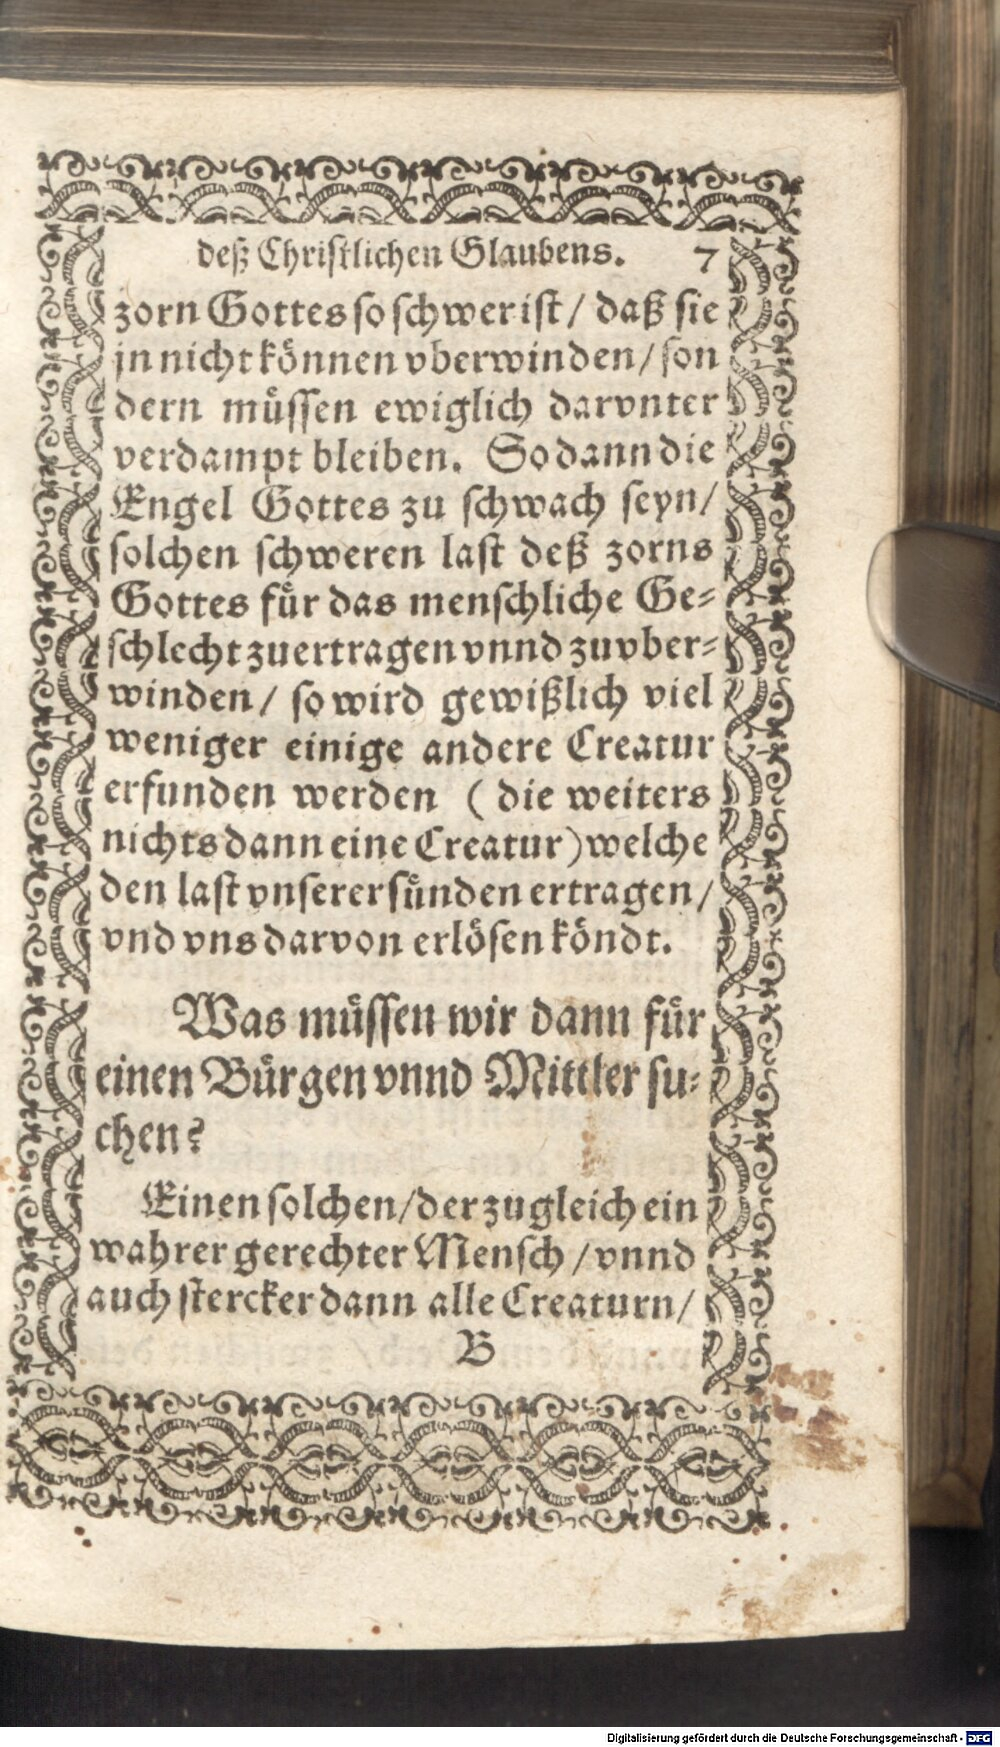 deß Christlichen Glaubens. 7
zorn Gottes so schwer ist / daß sie
jn nicht können vberwinden / son
dern müssen ewiglich darvnter
verdampt bleiben. So dann die
Engel Gottes zu schwach seyn /
solchen schweren last deß zorns
Gottes für das menschliche Ge-
schlecht zuertragen vnnd zuvber-
winden / so wird gewißlich viel
weniger einige andere Creatur
erfunden werden ( die weiters
nichts dann eine Creatur) welche
den last vnserer sünden ertragen /
vnd vns darvon erlösen köndt.
Was müssen wir dann für
einen Bürgen vnnd Mittler su-
chen?
Einen solchen / der zugleich ein
wahrer gerechter Mensch / vnnd
auch stercker dann alle Creaturn /
B
Digitalisierung gefördert durch die Deutsche Forschungsgemeinschaft - DFG